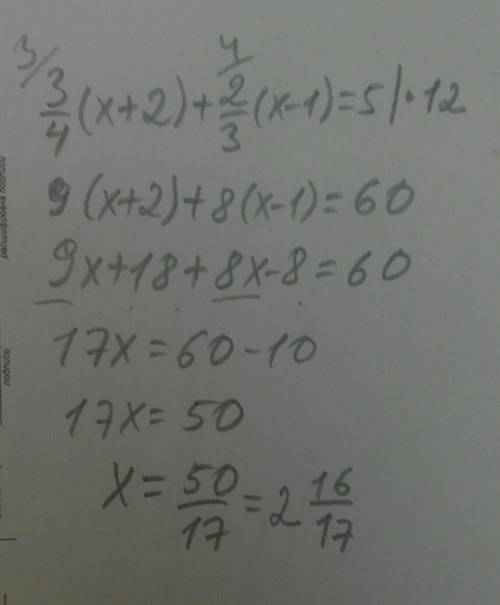 3/ 4/
3/4 (x+2) + 2/3 (x-1) = 5 | · 12
9 (x+2) + 8 (x-1) = 60
9x + 18 + 8x - 8 = 60
17x = 60 - 10
17x = 50
x = 50/17 = 2 16/17
расшифровка подписи
подпись